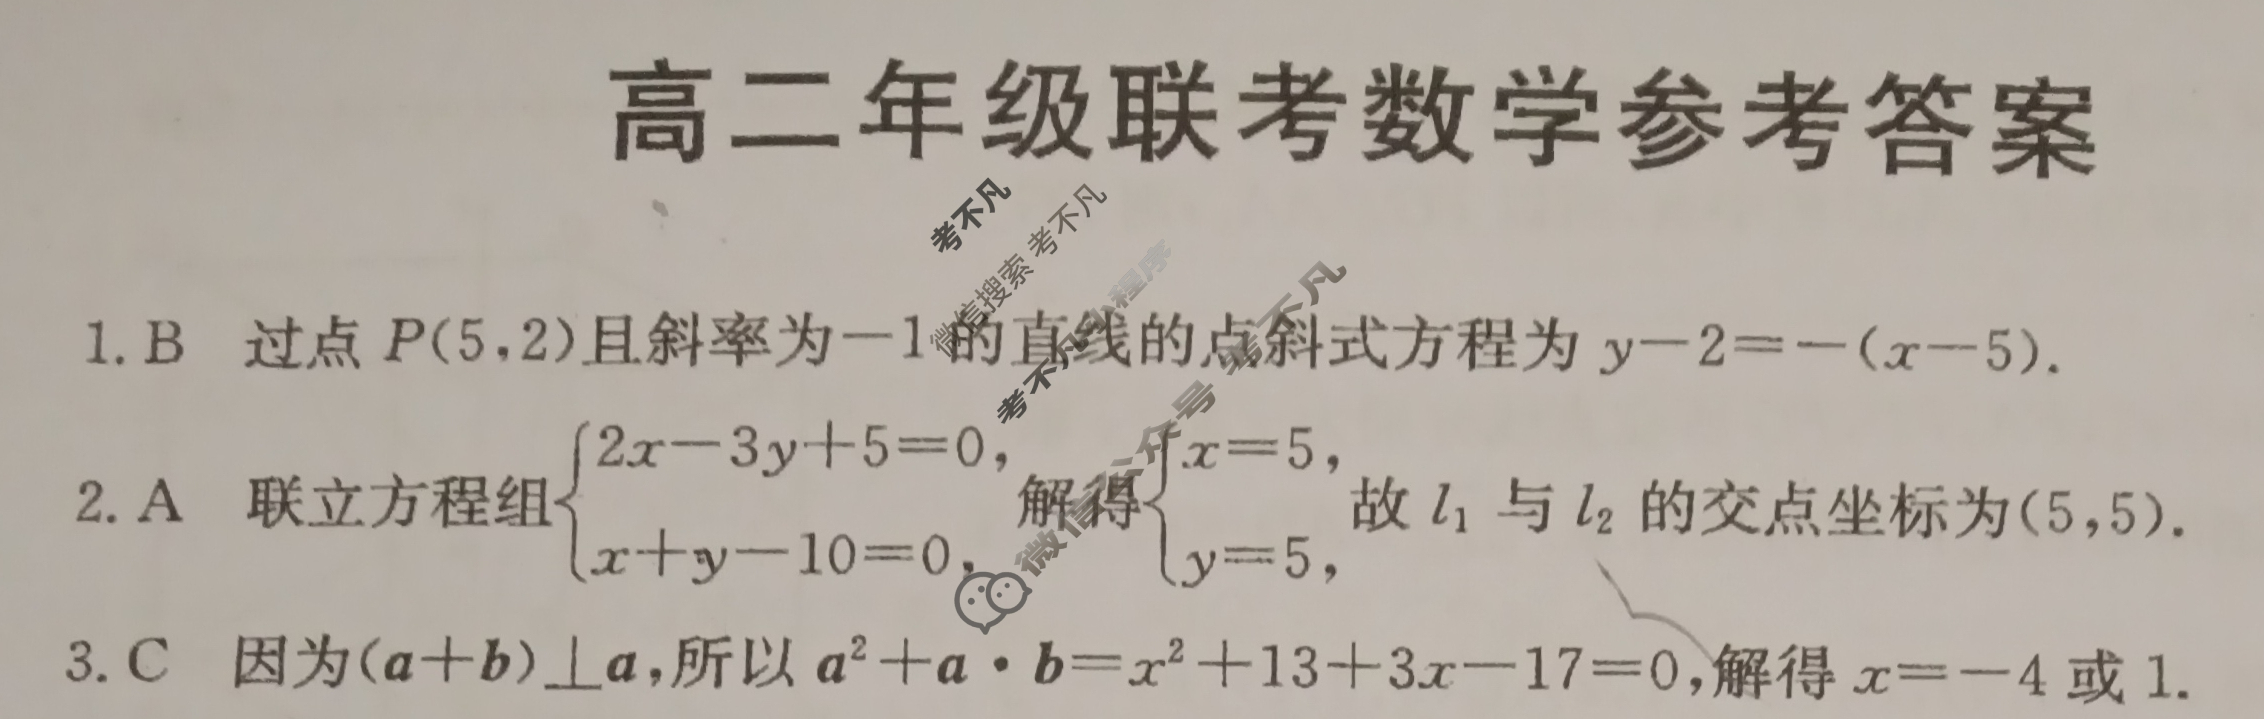 高二年级联考数学参考答案
考不凡
微信搜索 考不凡
考不凡 小程序
微信公众号 考不凡
1. B 过点 P(5,2)且斜率为－1 的直线的点斜式方程为 y－2＝－(x－5).
2. A 联立方程组{2x－3y＋5＝0, x＋y－10＝0, 解得{x＝5, y＝5, 故 l₁ 与 l₂ 的交点坐标为(5,5).
3. C 因为(a＋b)⊥a,所以 a²＋a・b＝x²＋13＋3x－17＝0,解得 x＝－4 或 1.